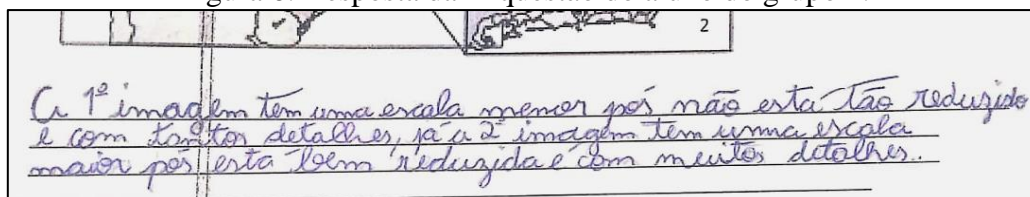 2
A 1ª imagem tem uma escala menor pós não esta tão reduzido
e com tantos detalhes, já a 2ª imagem tem umma escala
maior pós esta bem reduzida e com muitos detalhes.